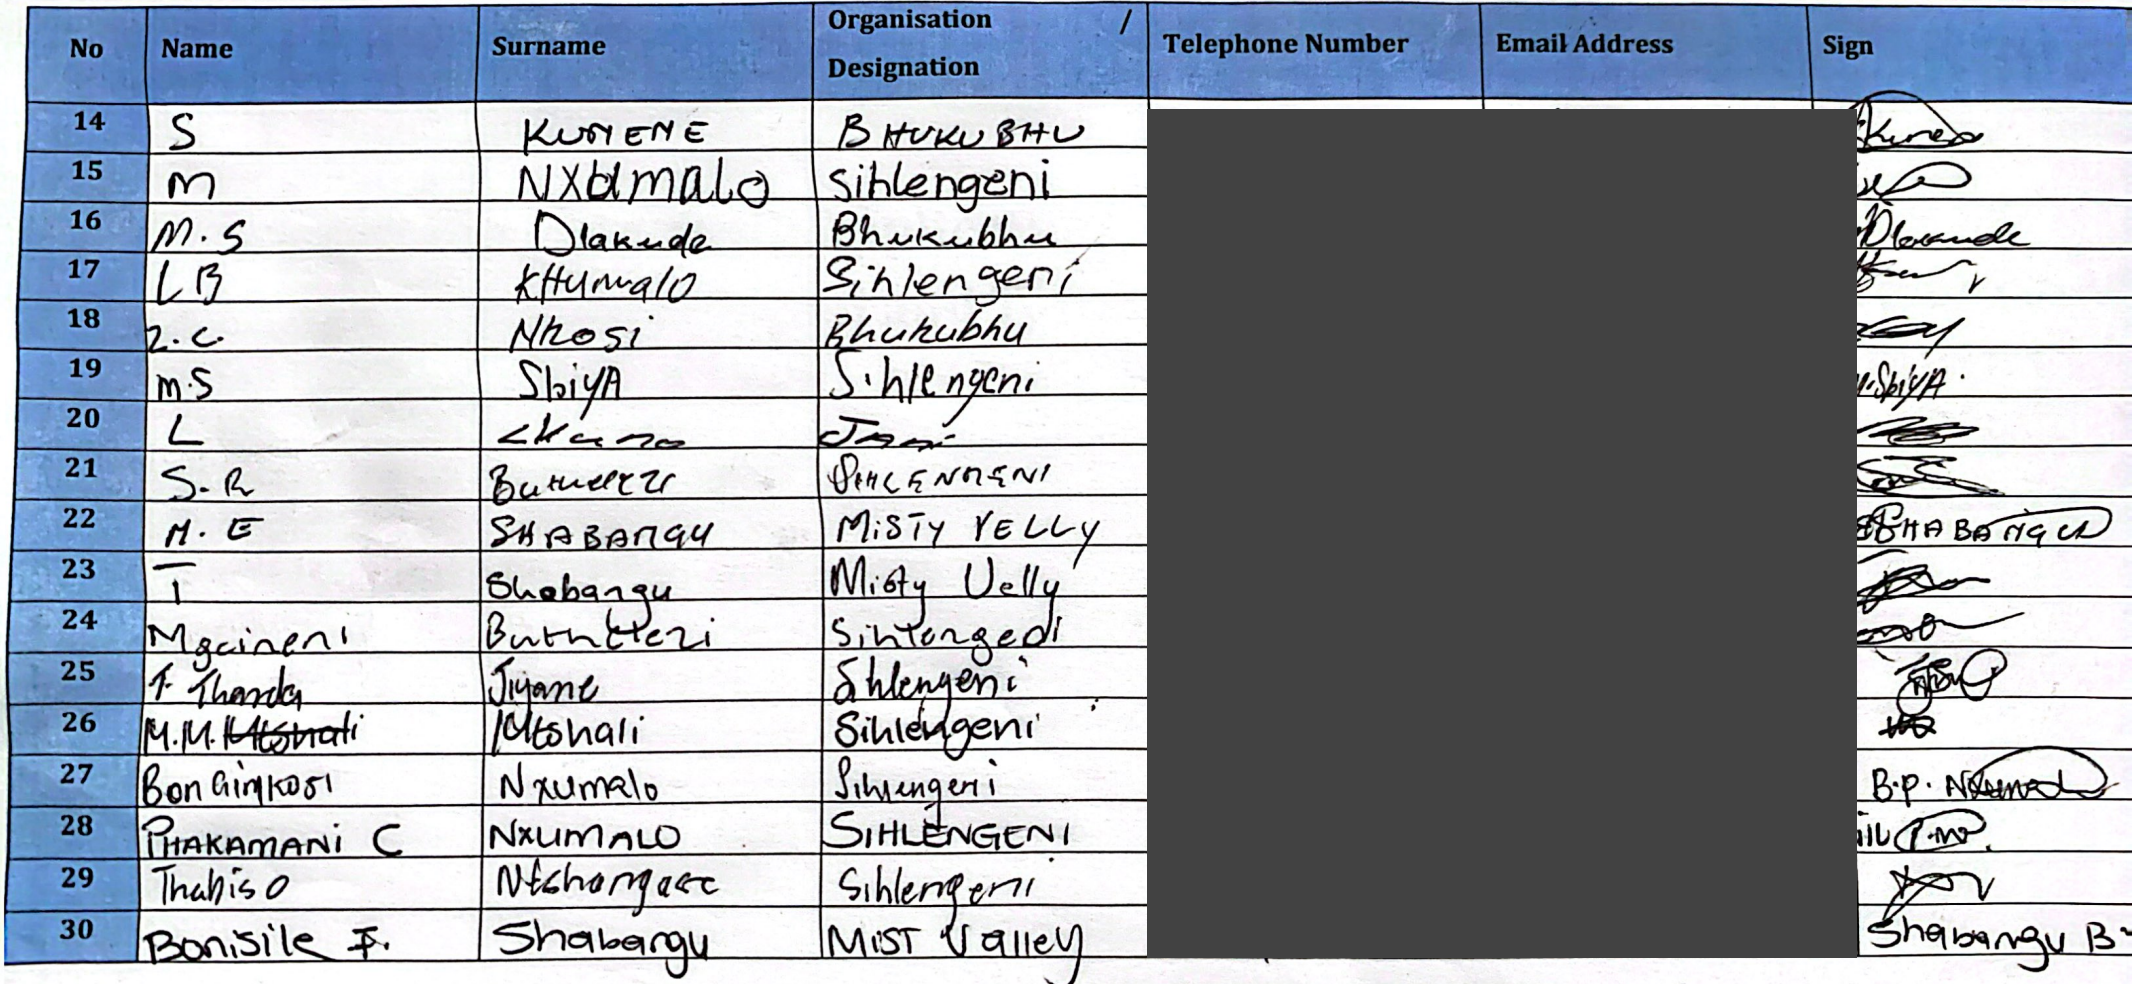 No Name Surname Organisation / Designation Telephone Number Email Address Sign
14 S KUMENE BHUKUBHU
15 M NXUMALO Sihlengeni
16 M.S Dlakude Bhukubhu Dlakude
17 LB KHumalo Sihlengeni
18 Z.C. Nkosi Bhukubhu
19 M.S SbiyA Sihlengeni SbiyA.
20 L
21 S.R SIHLENGENI
22 M.E SHABANGU MiSTY VELLY SHABANGU
23 T Shabangu Misty Velly
24 Mgcineni Buthelezi
25 T. Thanda Jiyane Sihlengeni
26 M.M. Mtshali Mtshali Sihlengeni
27 Bonginkosi Nxumalo Sihlengeni B.P. Nxumalo
28 PHAKAMANi C NXUMALO SIHLENGENI
29 Thabiso Ntshangase Sihlengeni
30 Bonisile F. Shabangu MiST Valley Shabangu B